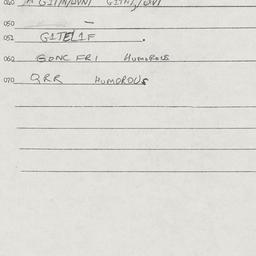 040
050 –
051 G1TEL1F .
060 GONC FRI HUMOROUS
070 QRR HUMOROUS